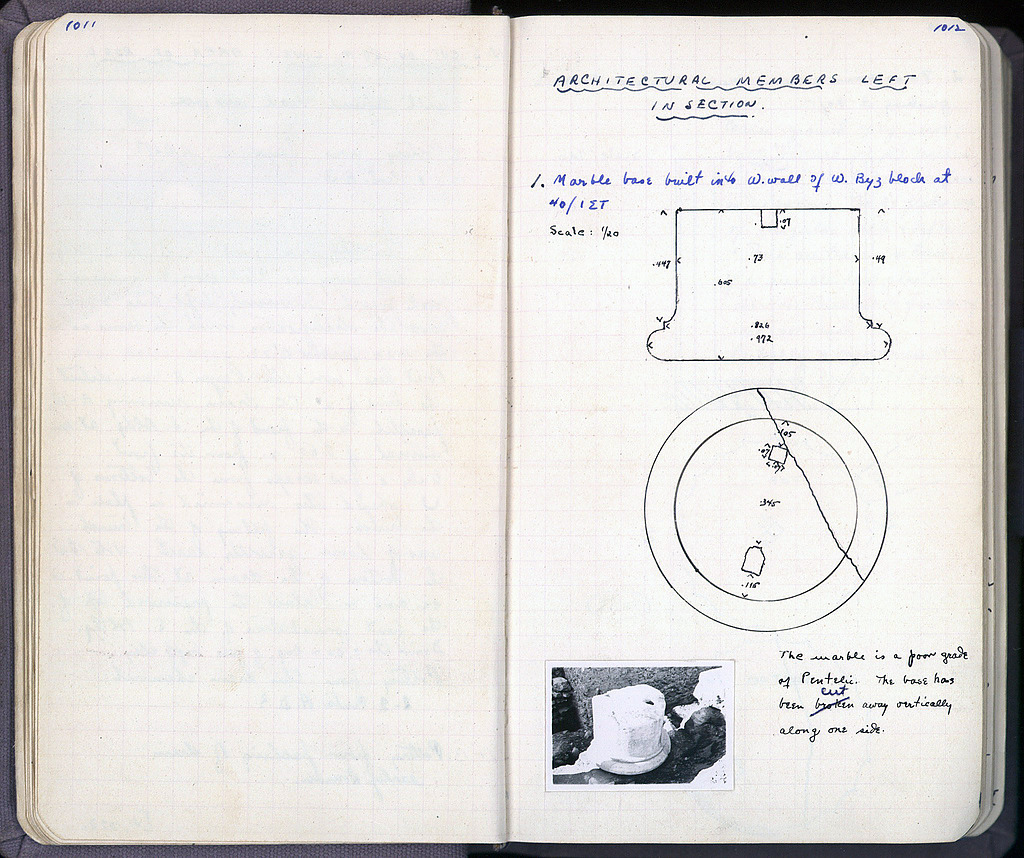 1011
1012
ARCHITECTURAL MEMBERS LEFT
IN SECTION.
1. Marble base built into W. wall of W. Byz block at
40/1 ΣΤ
Scale: 1/20
.07
.447
.73
.49
.605
.826
.972
.105
.07
.077
.345
.115
The marble is a poor grade
of Pentelic. The base has
cut
been broken away vertically
along one side.